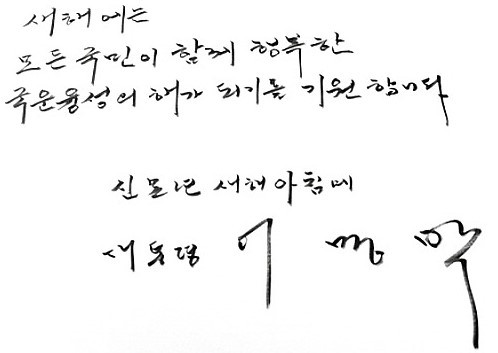 새해에는
모든 국민이 함께 행복한
국운융성의 해가 되기를 기원합니다
신묘년 새해아침에
대통령 이명박